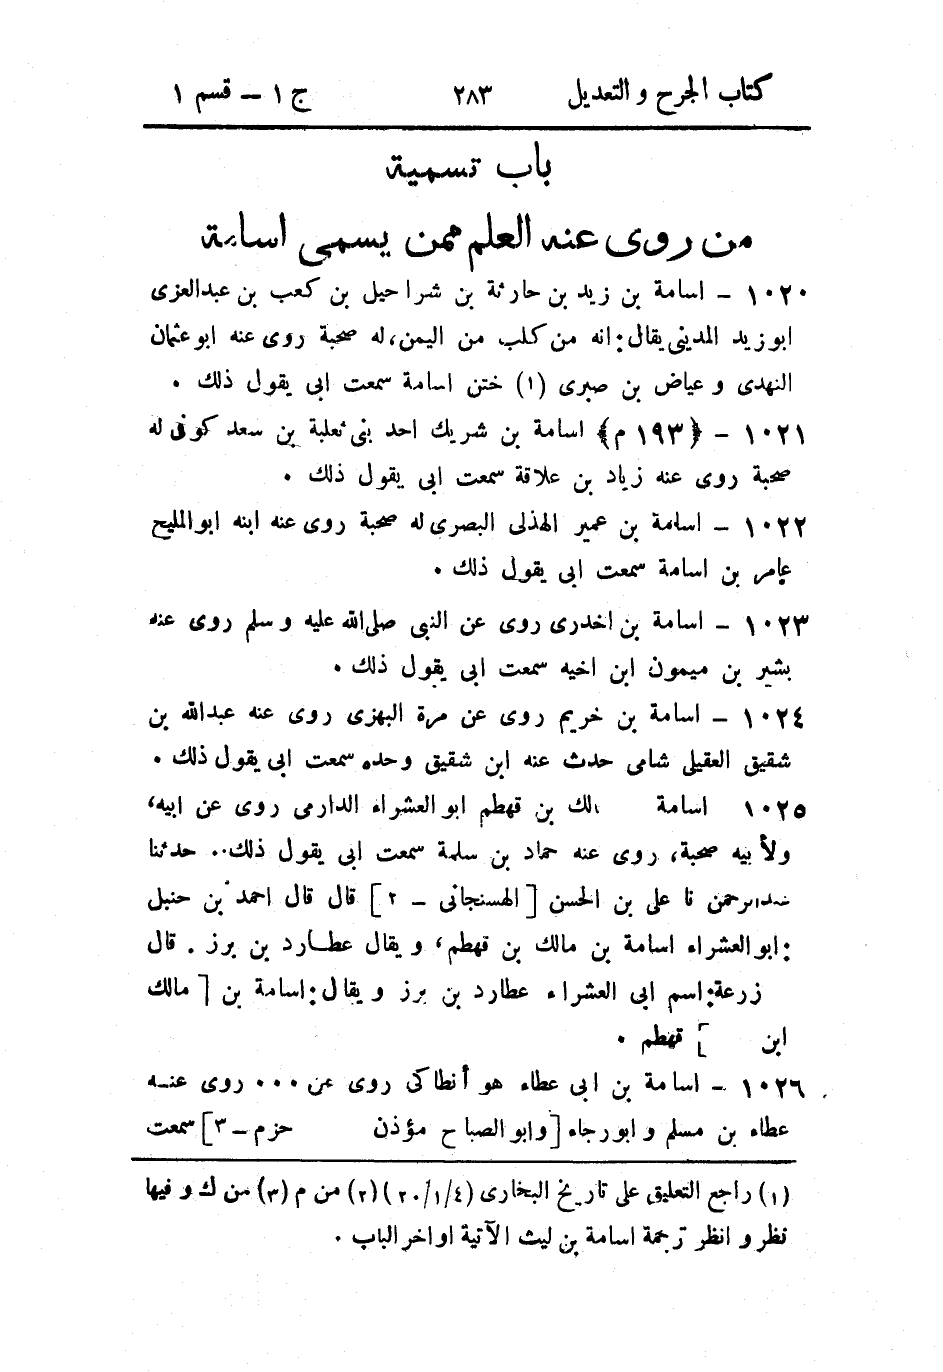 كتاب الجرح و التعديل ٢٨٣ ج ١ – قسم ١
باب تسمية
من روى عنه العلم ممن يسمى اسامة
١٠٢٠ – اسامة بن زيد بن حارثة بن شراحيل بن كعب بن عبدالعزى
ابو زيد المدينى يقال: انه من كلب من اليمن، له صحبة روى عنه ابو عثمان
النهدى و عياض بن صبرى (١) ختن اسامة سمعت ابى يقول ذلك .
١٠٢١ – ﴿١٩٣ م﴾ اسامة بن شريك احد بنى ثعلبة بن سعد كوفى له
صحبة روى عنه زياد بن علاقة سمعت ابى يقول ذلك .
١٠٢٢ – اسامة بن عمير الهذلى البصرى له صحبة روى عنه ابنه ابو المليح
عامر بن اسامة سمعت ابى يقول ذلك .
١٠٢٣ – اسامة بن اخدرى روى عن النبى صلى الله عليه و سلم روى عنه
بشير بن ميمون ابن اخيه سمعت ابى يقول ذلك .
١٠٢٤ – اسامة بن خريم روى عن مرة البهزى روى عنه عبدالله بن
شقيق العقيلى شامى حدث عنه ابن شقيق وحده سمعت ابى يقول ذلك .
١٠٢٥ اسامة الك بن قهطم ابو العشراء الدارمى روى عن ابيه،
ولأبيه صحبة، روى عنه حماد بن سلمة سمعت ابى يقول ذلك.. حدثنا
عبدالرحمن نا على بن الحسن [الهسنجانى – ٢] قال قال احمد بن حنبل
: ابو العشراء اسامة بن مالك بن قهطم، و يقال عطارد بن برز . قال
زرعة: اسم ابى العشراء عطارد بن برز و يقال: اسامة بن [مالك
ابن ] قهطم .
١٠٢٦ – اسامة بن ابى عطاء هو أنطاكى روى عن ٠٠٠ روى عنه
عطاء بن مسلم و ابو رجاء [وابو الصباح مؤذن حزم – ٣] سمعت
(١) راجع التعليق على تاريخ البخارى (٢٠/١/٤) (٢) من م (٣) من ك و فيها
نظر و انظر ترجمة اسامة بن ليث الآتية اواخر الباب .